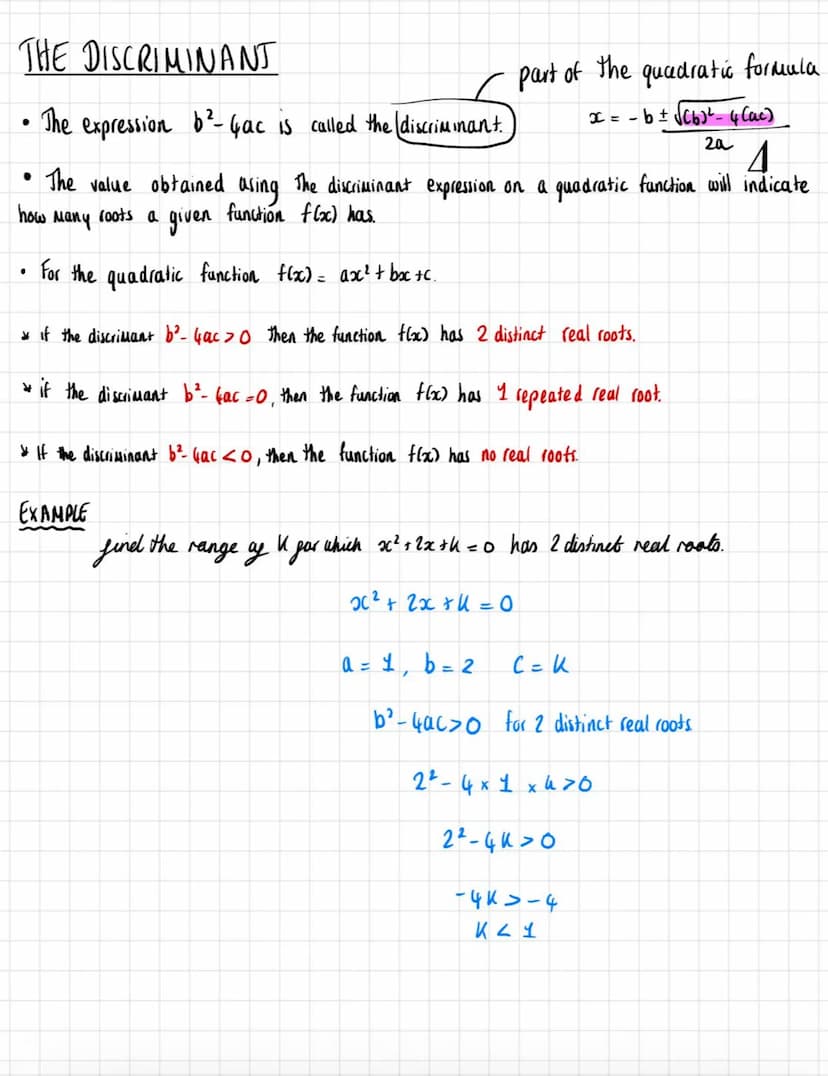 THE DISCRIMINANT
part of the quadratic formula
• The expression b²-4ac is called the discriminant.
x = -b ± √(b)² - 4(ac)
2a
Δ
• The value obtained using the discriminant expression on a quadratic function will indicate
how many roots a given function f(x) has.
• For the quadratic function f(x) = ax² + bx + c.
* if the discrimant b²-4ac > 0 then the function f(x) has 2 distinct real roots.
* if the discrimant b²-4ac = 0, then the function f(x) has 1 repeated real root.
* If the discriminant b²-4ac < 0, then the function f(x) has no real roots.
EXAMPLE
find the range of k for which x² + 2x + k = 0 has 2 distinct real roots.
x² + 2x + k = 0
a = 1, b = 2 c = k
b² - 4ac > 0 for 2 distinct real roots
2² - 4 × 1 × k > 0
2² - 4k > 0
-4k > -4
k < 1